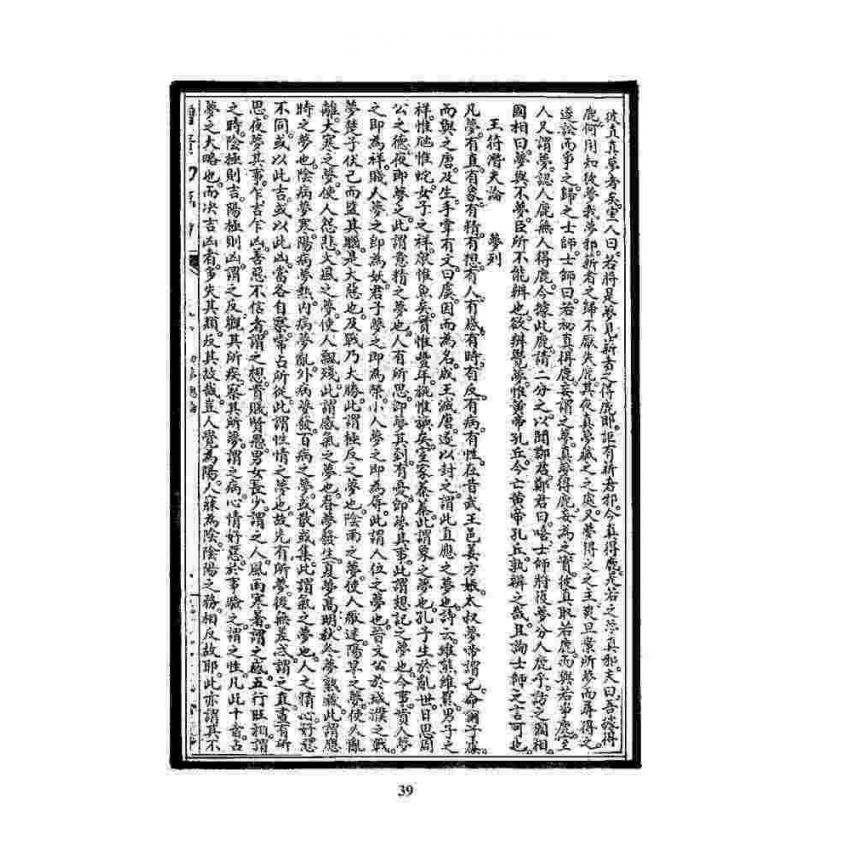 彼直真夢者矣室人曰若將是夢見薪者之得鹿耶詎有薪者邪今真得鹿是若之夢真邪夫曰吾彼得
鹿何用知彼夢我夢邪薪者之歸不厭失鹿其夜真夢藏之之處又夢得之之主爽旦案所夢而尋得之
遂訟而爭之歸之士師士師曰若初真得鹿妄謂之夢真夢得鹿妄為之實彼真取若鹿而與若爭鹿室
人又謂夢認人鹿無人得鹿今據此鹿請二分之以聞鄭君鄭君曰嘻士師將復夢分人鹿乎訪之國相
國相曰夢與不夢臣所不能辨也欲辨覺夢惟黃帝孔丘今亡黃帝孔丘孰辨之哉且詢士師之言可也
王符潛夫論　夢列
凡夢有直有象有精有想有人有感有時有反有病有性在昔武王邑姜方娠太叔夢帝謂己命爾子虞
而與之唐及生手掌有文曰虞因而為名成王滅唐遂以封之謂此直應之夢也詩云維熊維羆男子之
祥惟虺惟蛇女子之祥眾惟魚矣實惟豐年旐惟旟矣室家蓁蓁此謂象之夢也孔子生於亂世日思周
公之德夜即夢之此謂意精之夢也人有所思即夢其到有憂即夢其事此謂想記之夢也今事貴人夢
之即為祥賤人夢之即為妖君子夢之即為榮小人夢之即為辱此謂人位之夢也晉文公於城濮之戰
夢楚子伏己而盬其腦是大惡也及戰乃大勝此謂極反之夢也陰雨之夢使人厭迷陽旱之夢使人亂
離大寒之夢使人怨悲大風之夢使人飄殘此謂感氣之夢也春夢發生夏夢高明秋冬夢熟藏此謂應
時之夢也陰病夢寒陽病夢熱內病夢亂外病夢發百病之夢或散或集此謂氣之夢也人之情心好惡
不同或以此吉或以此凶當各自察常占所從此謂性情之夢也故先有所夢後無差忒謂之直晝有所
思夜夢其事乍吉乍凶善惡不信者謂之想貴賤賢愚男女長少謂之人風雨寒暑謂之感五行旺相謂
之時陰極則吉陽極則凶謂之反觀其所疾察其所夢謂之病心情好惡於事驗之謂之性凡此十者占
夢之大略也而決吉凶者多失其類反其故哉豈人覺為陽人寐為陰陰陽之務相反故耶此亦謂其不